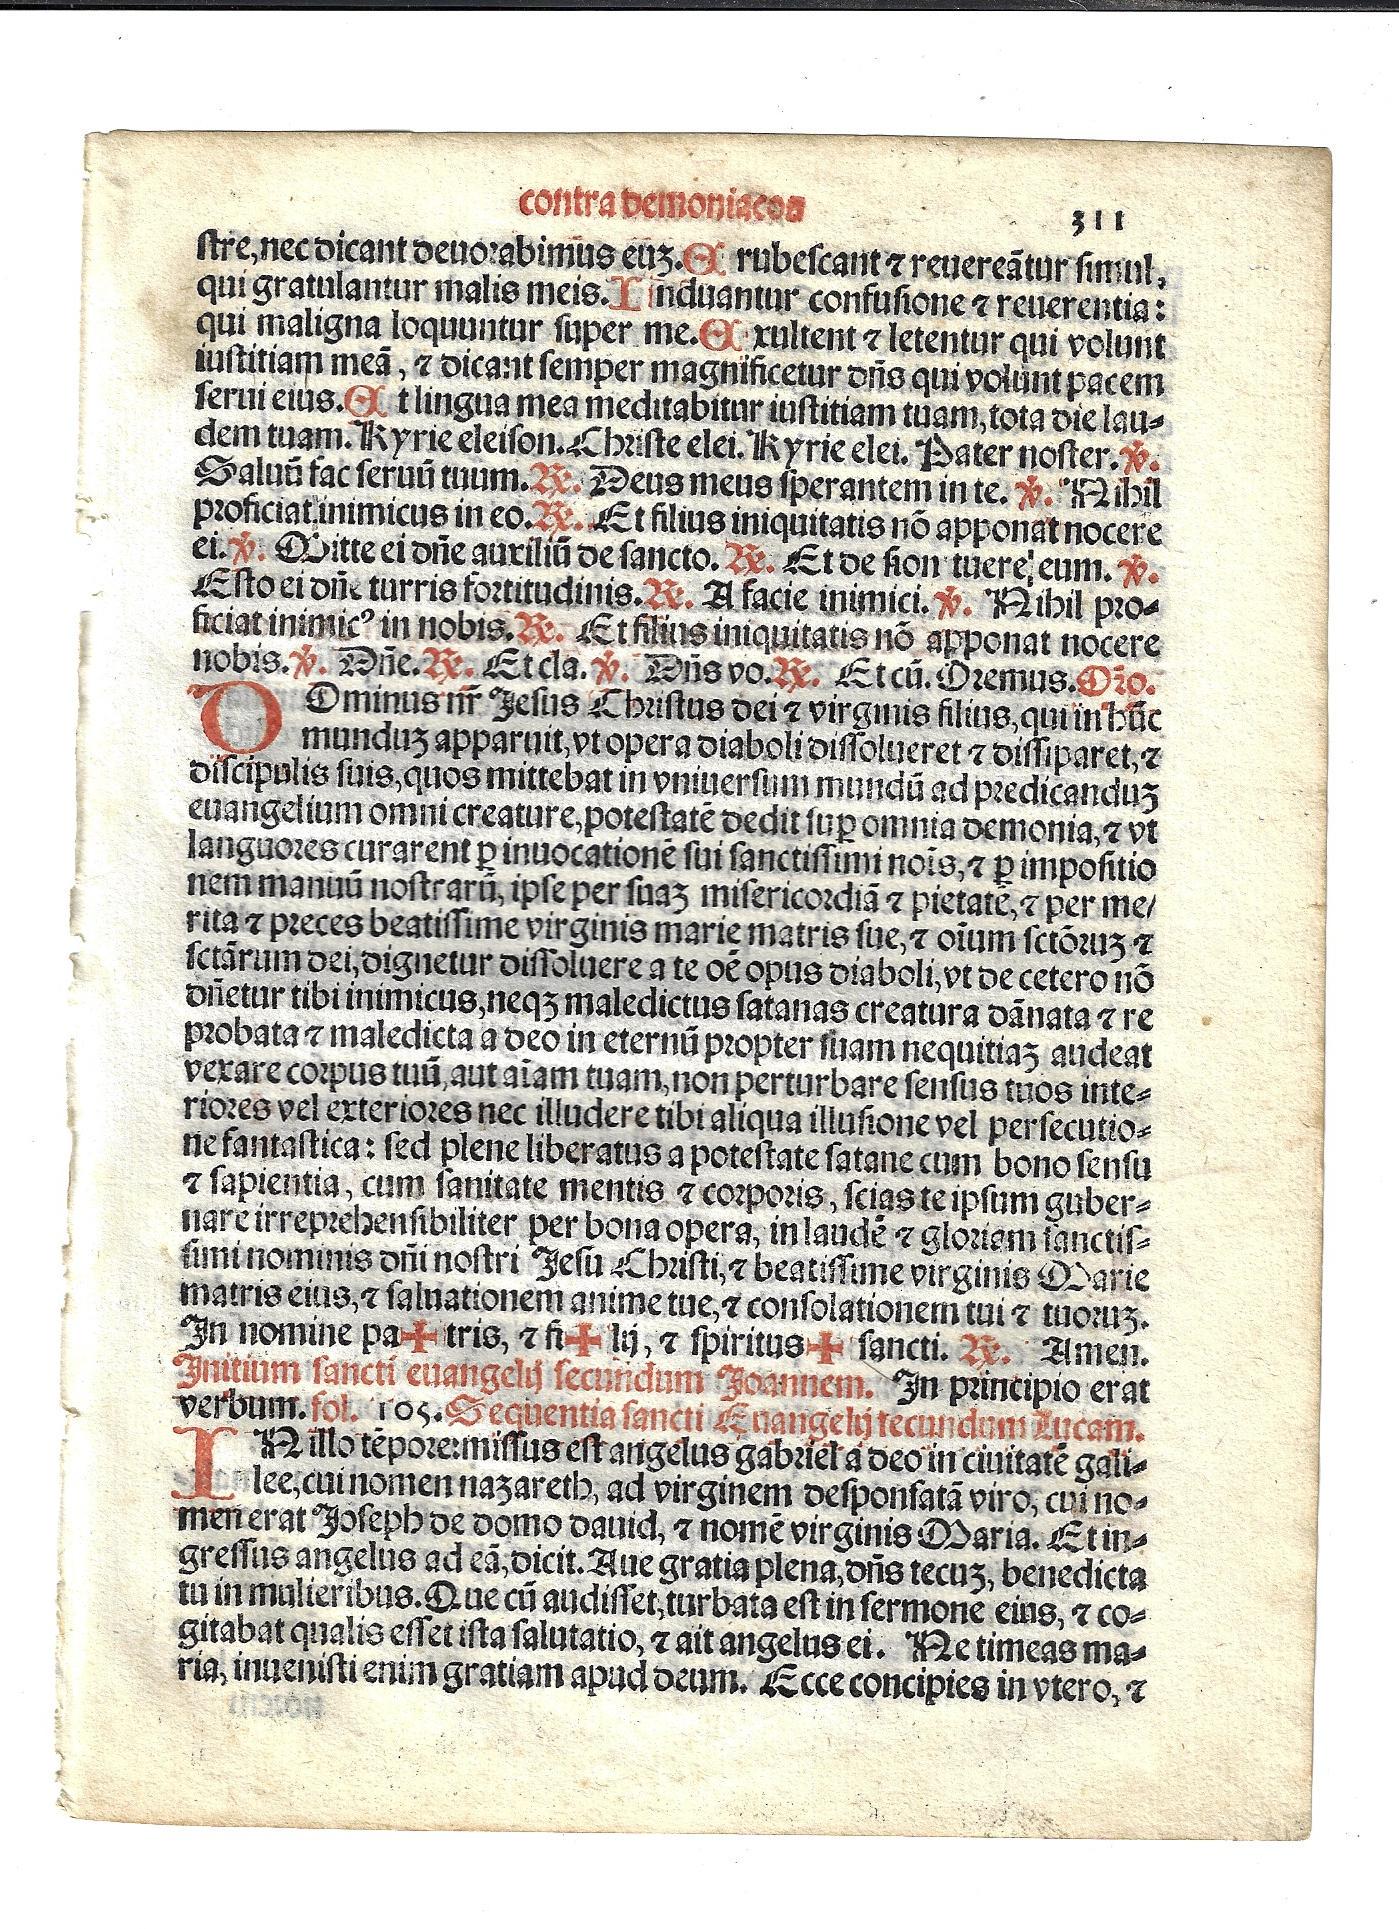 contra demoniacos
311
stre, nec dicant deuorabimus euʒ. E rubescant ⁊ reuereãtur simul,
qui gratulantur malis meis. I nduantur confusione ⁊ reuerentia:
qui maligna loquuntur super me. E xultent ⁊ letentur qui volunt
iustitiam meã, ⁊ dicant semper magnificetur dñs qui volunt pacem
serui eius. E t lingua mea meditabitur iustitiam tuam, tota die lau-
dem tuam. Kyrie eleison. Christe elei. Kyrie elei. Pater noster. ℣.
Saluũ fac seruũ tuum. ℟. Deus meus sperantem in te. ℣. Nihil
proficiat inimicus in eo. ℟. Et filius iniquitatis nõ apponat nocere
ei. ℣. Mitte ei dñe auxiliũ de sancto. ℟. Et de sion tuere eum. ℣.
Esto ei dñe turris fortitudinis. ℟. A facie inimici. ℣. Nihil pro-
ficiat inimicꝰ in nobis. ℟. Et filius iniquitatis nõ apponat nocere
nobis. ℣. Dñe. ℟. Et cla. ℣. Dñs vo. ℟. Et cũ. Oremus. Oro.
DOminus nr̃ Jesus Christus dei ⁊ virginis filius, qui in hũc
munduʒ apparuit, vt opera diaboli dissolueret ⁊ dissiparet, ⁊
discipulis suis, quos mittebat in vniuersum mundũ ad predicanduʒ
euangelium omni creature, potestatẽ dedit suꝑ omnia demonia, ⁊ vt
languores curarent ꝑ inuocationẽ sui sanctissimi nois̃, ⁊ ꝑ impositio
nem manuũ nostrarũ, ipse per suaʒ misericordiã ⁊ pietatẽ, ⁊ per me/
rita ⁊ preces beatissime virginis marie matris sue, ⁊ oĩum sctõruʒ ⁊
sctãrum dei, dignetur dissoluere a te oẽ opus diaboli, vt de cetero nõ
dñetur tibi inimicus, neqʒ maledictus satanas creatura dãnata ⁊ re
probata ⁊ maledicta a deo in eternũ propter suam nequitiaʒ audeat
vexare corpus tuũ, aut aĩam tuam, non perturbare sensus tuos inte-
riores vel exteriores nec illudere tibi aliqua illusione vel persecutio-
ne fantastica: sed plene liberatus a potestate satane cum bono sensu
⁊ sapientia, cum sanitate mentis ⁊ corporis, scias te ipsum guber-
nare irreprehensibiliter per bona opera, in laudẽ ⁊ gloriam sanctis-
simi nominis dñi nostri Jesu Christi, ⁊ beatissime virginis Marie
matris eius, ⁊ saluationem anime tue, ⁊ consolationem tui ⁊ tuoruʒ.
In nomine pa✠tris, ⁊ fi✠lij, ⁊ spiritus✠ sancti. ℟. Amen.
Initium sancti euangelij secundum Joannem. In principio erat
verbum. fol. 105. Sequentia sancti Euangelij secundum Lucam.
IN illo tẽpore: missus est angelus gabriel a deo in ciuitatẽ gali-
lee, cui nomen naʒareth, ad virginem desponsatã viro, cui no-
men erat Joseph de domo dauid, ⁊ nomẽ virginis Maria. Et in-
gressus angelus ad eã, dicit. Aue gratia plena, dñs tecuʒ, benedicta
tu in mulieribus. Que cũ audisset, turbata est in sermone eius, ⁊ co-
gitabat qualis esset ista salutatio, ⁊ ait angelus ei. Ne timeas ma-
ria, inuenisti enim gratiam apud deum. Ecce concipies in vtero, ⁊